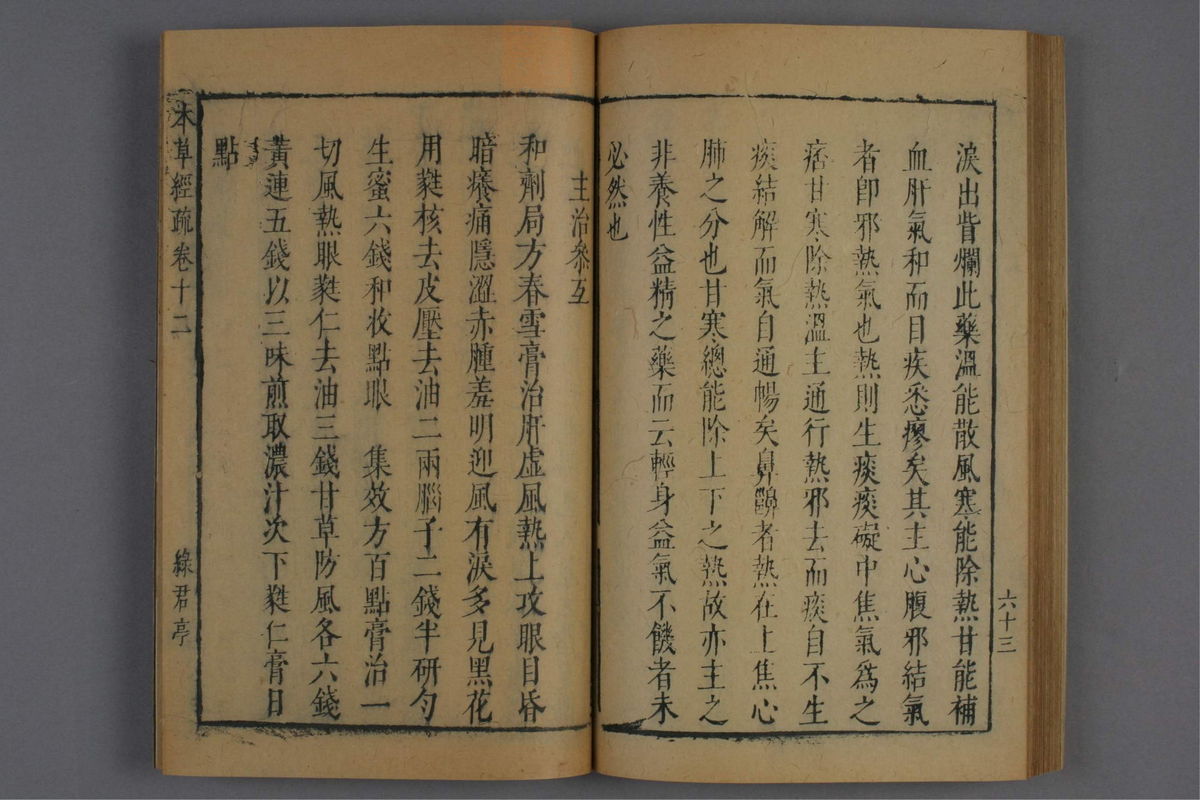 六十三
淚出眥爛此藥溫能散風寒能除熱甘能補
血肝氣和而目疾悉瘳矣其主心腹邪結氣
者卽邪熱氣也熱則生痰痰礙中焦氣爲之
痞甘寒除熱溫主通行熱邪去而痰自不生
痰結解而氣自通暢矣鼻鼽者熱在上焦心
肺之分也甘寒總能除上下之熱故亦主之
非養性益精之藥而云輕身益氣不饑者未
必然也
主治參互
和劑局方春雪膏治肝虛風熱上攻眼目昏
暗癢痛隱澀赤腫羞明迎風有淚多見黑花
用蕤核去皮壓去油二兩腦子二錢半研勻
生蜜六錢和收點眼 集效方百點膏治一
切風熱眼蕤仁去油三錢甘草防風各六錢
黃連五錢以三味煎取濃汁次下蕤仁膏日
點
本草經疏 卷十二 綠君亭